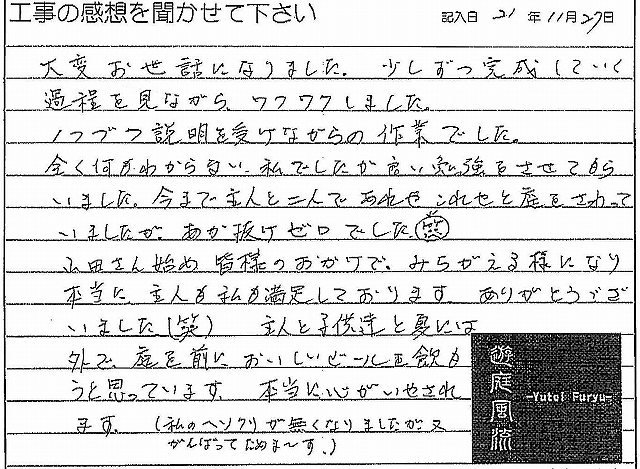 工事の感想を聞かせて下さい
記入日 21 年 11月 27日
大変お世話になりました。少しずつ完成していく
過程を見ながら、ワクワクしました。
1つづつ説明を受けながらの作業でした。
全く何がわからない、私でしたが良い勉強をさせてもら
いました。今まで主人と二人であれやこれやと庭をさわって
いましたが、あか抜けゼロでした(笑)
山田さん始め皆様のおかげで、みちがえる様になり
本当に、主人も私も満足しております。ありがとうござ
いました(笑) 主人と子供達と夏には
外で、庭を前においしいビールを飲も
うと思っています。本当に心がいやされ
ます。(私のヘソクリが無くなりましたが又
がんばってためま〜す。)
遊庭風流
-Yutei Furyu-